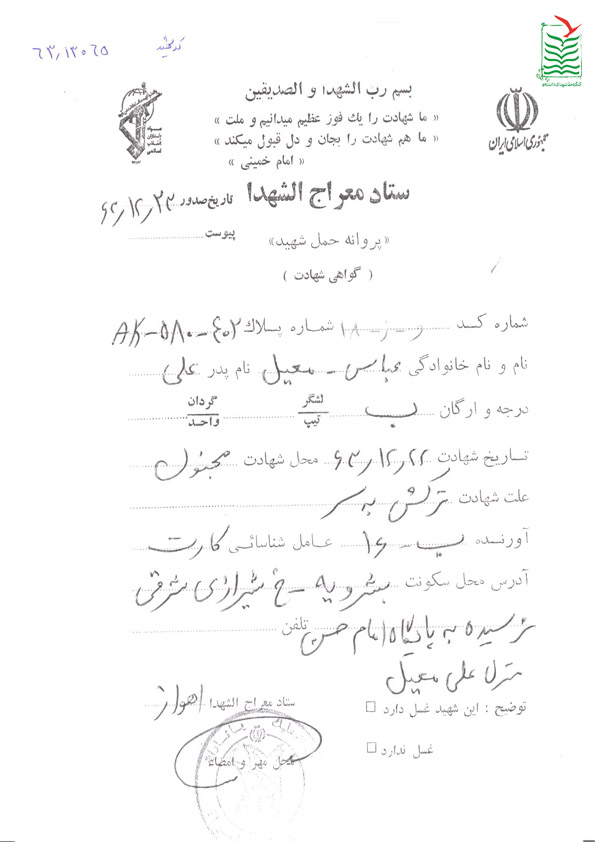 کد شهید ۶۳,۱۳۰۶۵
بسم رب الشهدا و الصدیقین
« ما شهادت را یك فوز عظیم میدانیم و ملت »
« ما هم شهادت را بجان و دل قبول میکند »
« امام خمینی »
جمهوری اسلامی ایران
ستاد معراج الشهدا
تاریخ صدور ۶۳,۱۲,۲۳
پیوست
«پروانه حمل شهید»
( گواهی شهادت )
شماره کد و-ز-۱۸ شماره پلاك AK-۵۸۰-۴۰۲
نام و نام خانوادگی عباس - معیل نام پدر علی
درجه و ارگان ب لشگر تیپ گردان واحد
تاریخ شهادت ۶۳,۱۲,۲۲ محل شهادت مجنون
علت شهادت ترکش به سر
آورنده ب-۱۶ عامل شناسائی کارت
آدرس محل سکونت بشرویه - خ شیرازی شرقی
نرسیده به پایگاه امام حسن تلفن
منزل علی معیل
توضیح : این شهید غسل دارد
غسل ندارد
ستاد معراج الشهدا اهواز
محل مهر و امضاء